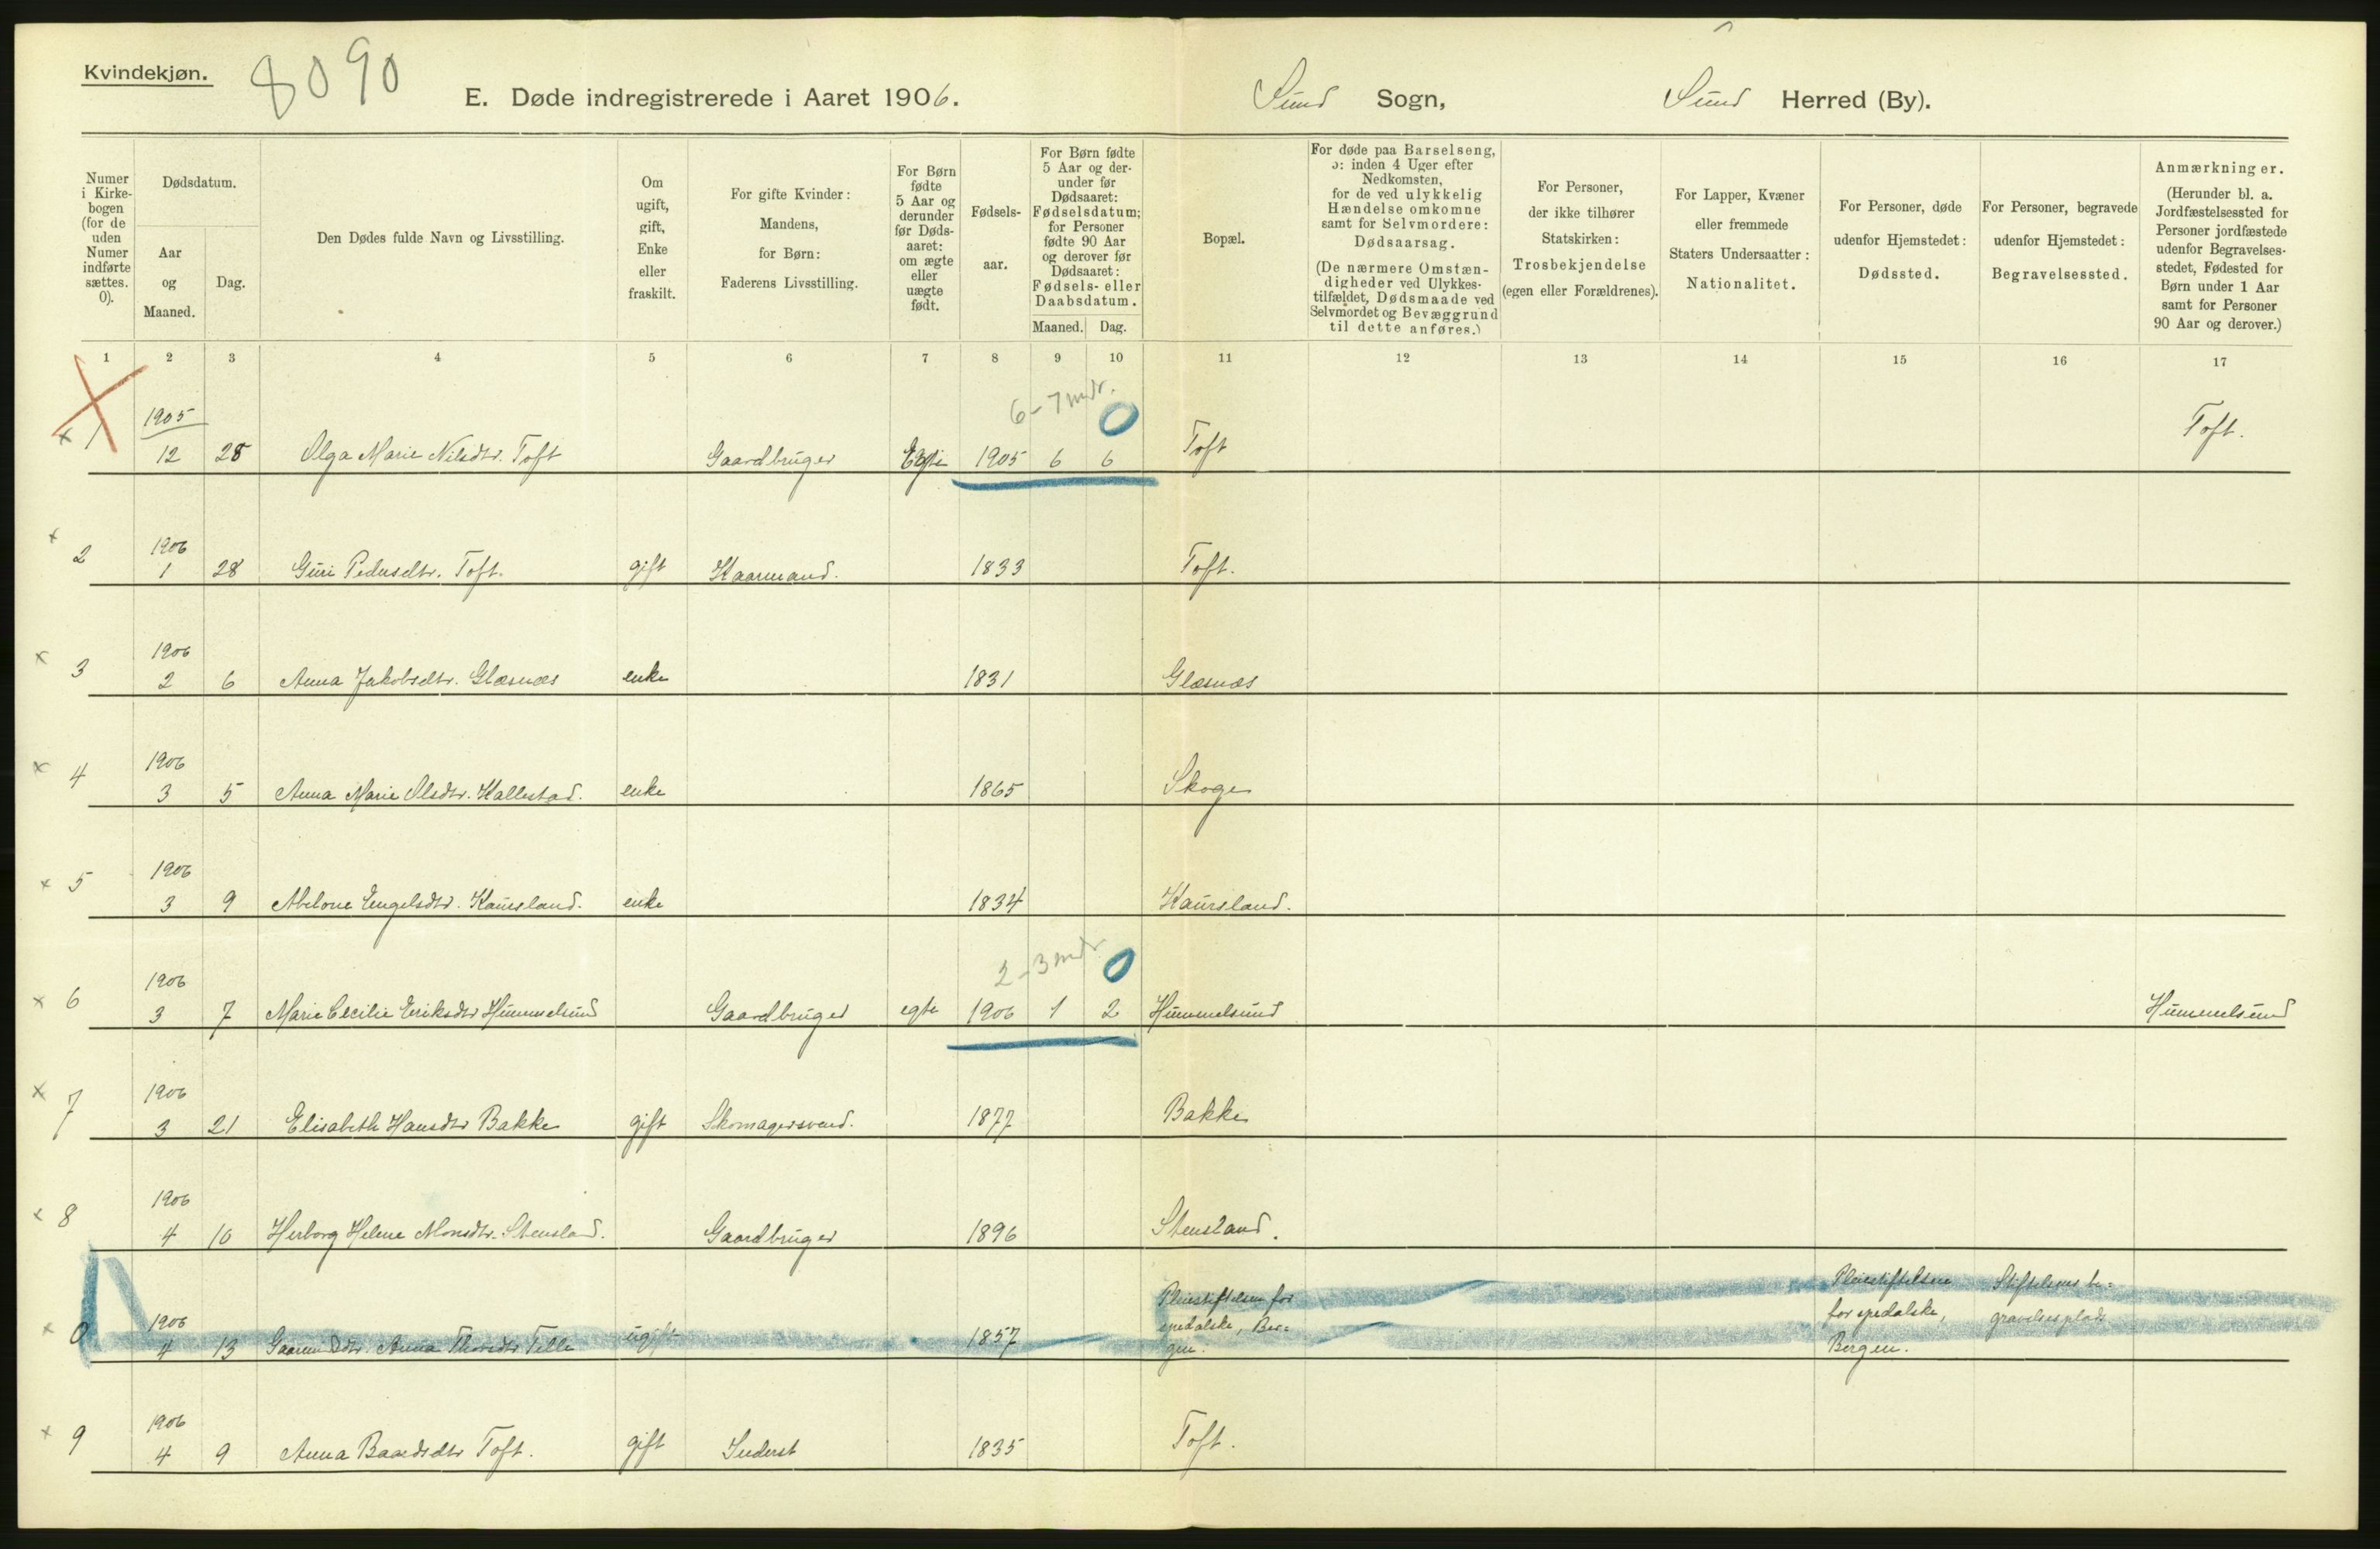 Kvindekjøn.
8090
E. Døde indregistrerede i Aaret 1906.
Sund Sogn,
Sund Herred (By).
Numer
i Kirke-
bogen
(for de
uden
Numer
indførte
sættes.
0).
Dødsdatum.
Aar
og
Maaned.
Dag.
Den Dødes fulde Navn og Livsstilling.
Om
ugift,
gift,
Enke
eller
fraskilt.
For gifte Kvinder:
Mandens,
for Børn:
Faderens Livsstilling.
For Børn
fødte
5 Aar og
derunder
før Døds-
aaret:
om ægte
eller
uægte
født.
Fødsels-
aar.
For Børn fødte
5 Aar og der-
under før
Dødsaaret:
Fødselsdatum;
for Personer
fødte 90 Aar
og derover før
Dødsaaret:
Fødsels- eller
Daabsdatum.
Maaned. Dag.
Bopæl.
For døde paa Barselseng,
ɔ: inden 4 Uger efter
Nedkomsten,
for de ved ulykkelig
Hændelse omkomne
samt for Selvmordere:
Dødsaarsag.
(De nærmere Omstæn-
digheder ved Ulykkes-
tilfældet, Dødsmaade ved
Selvmordet og Bevæggrund
til dette anføres.)
For Personer,
der ikke tilhører
Statskirken:
Trosbekjendelse
(egen eller Forældrenes).
For Lapper, Kvæner
eller fremmede
Staters Undersaatter:
Nationalitet.
For Personer, døde
udenfor Hjemstedet:
Dødssted.
For Personer, begravede
udenfor Hjemstedet:
Begravelsessted.
Anmærkninger.
(Herunder bl. a.
Jordfæstelsessted for
Personer jordfæstede
udenfor Begravelses-
stedet, Fødested for
Børn under 1 Aar
samt for Personer
90 Aar og derover.)
1 2 3 4 5 6 7 8 9 10 11 12 13 14 15 16 17
6-7 mdr.
0
1905
x 1 12 28 Olga Marie Nilsdtr. Toft Gaardbruger Egte 1905 6 6 Toft Toft.
1906
x 2 1 28 Guri Pedersdtr. Toft. gift Kaarmand. 1833 Toft.
1906
x 3 2 6 Anna Jakobsdtr. Glæsnæs enke 1831 Glæsnæs
1906
x 4 3 5 Anna Marie Olsdtr. Hallestad. enke 1865 Skoge
1906
x 5 3 9 Abelone Engelsdtr. Kausland. enke 1834 Kaursland.
2-3 mdr.
0
1906
x 6 3 7 Marie Cecilie Eriksdtr Hummelsund Gaardbruger egte 1906 1 2 Hummelsund Hummelsund
1906
x 7 3 21 Elisabeth Hansdtr Bakke gift Skomagersvend. 1877 Bakke
1906
x 8 4 10 Herborg Helene Monsdtr. Stensland. Gaardbruger 1896 Stensland.
1906
x 0 4 13 Gaarm. Dtr. Anna Telle ugift 1857
Pleiestiftelsen for
spedalske, Ber=
gen.
Pleiestiftelsen
for spedalske,
Bergen.
Stiftelsens be=
gravelsesplads
1906
x 9 4 9 Anna Baardsdtr Toft. gift Inderst 1835 Toft.